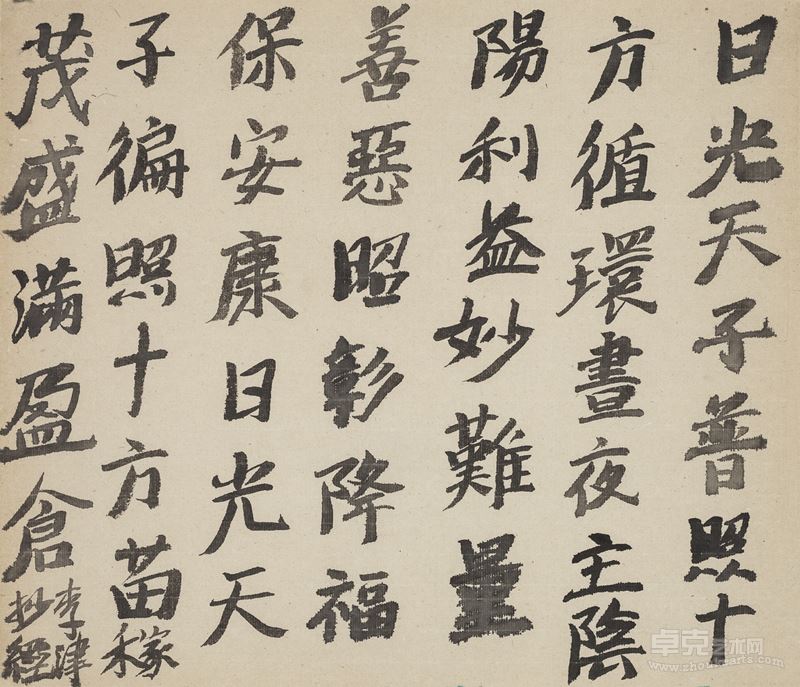 日光天子普照十
方循環晝夜主陰
陽利益妙難量
善惡昭彰降福
保安康日光天
子徧照十方苗稼
茂盛滿盈倉
李津
抄經
卓克艺术网
www.zhuokearts.com